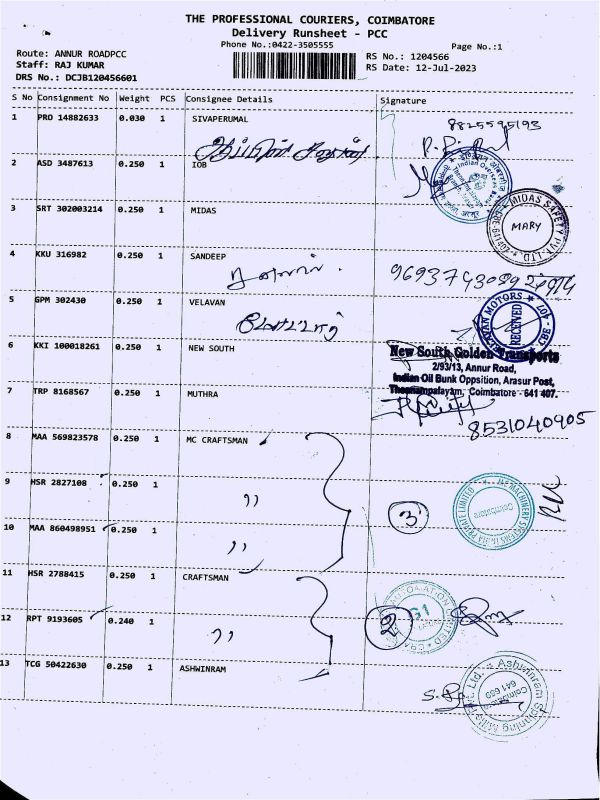 THE PROFESSIONAL COURIERS, COIMBATORE
Delivery Runsheet - PCC
Phone No.:0422-3505555
Page No.:1
Route: ANNUR ROADPCC
Staff: RAJ KUMAR
DRS No.: DCJB120456601
RS No.: 1204566
RS Date: 12-Jul-2023
S No Consignment No Weight PCS Consignee Details Signature
1 PRO 14882633 0.030 1 SIVAPERUMAL 8825595193
2 ASD 3487613 0.250 1 IOB
3 SRT 302003214 0.250 1 MIDAS
MIDAS SAFETY PVT. LTD.
MARY
4 KKU 316982 0.250 1 SANDEEP
5 GPM 302430 0.250 1 VELAVAN
MOTORS
RECEIVED
CBE - 407
6 KKI 100018261 0.250 1 NEW SOUTH
New South Golden Transports
2/93/13, Annur Road,
Indian Oil Bunk Oppsition, Arasur Post,
Coimbatore - 641 407.
7 TRP 8168567 0.250 1 MUTHRA
8531040905
8 MAA 569823578 0.250 1 MC CRAFTSMAN
9 HSR 2827108 0.250 1 ,,
3
PRIVATE LIMITED
Coimbatore
10 MAA 860498951 0.250 1 ,,
11 HSR 2788415 0.250 1 CRAFTSMAN
12 RPT 9193605 0.240 1 ,,
2
13 TCG 50422630 0.250 1 ASHWINRAM
Ashwinram Spinning Mills Pvt. Ltd.
Coimbatore